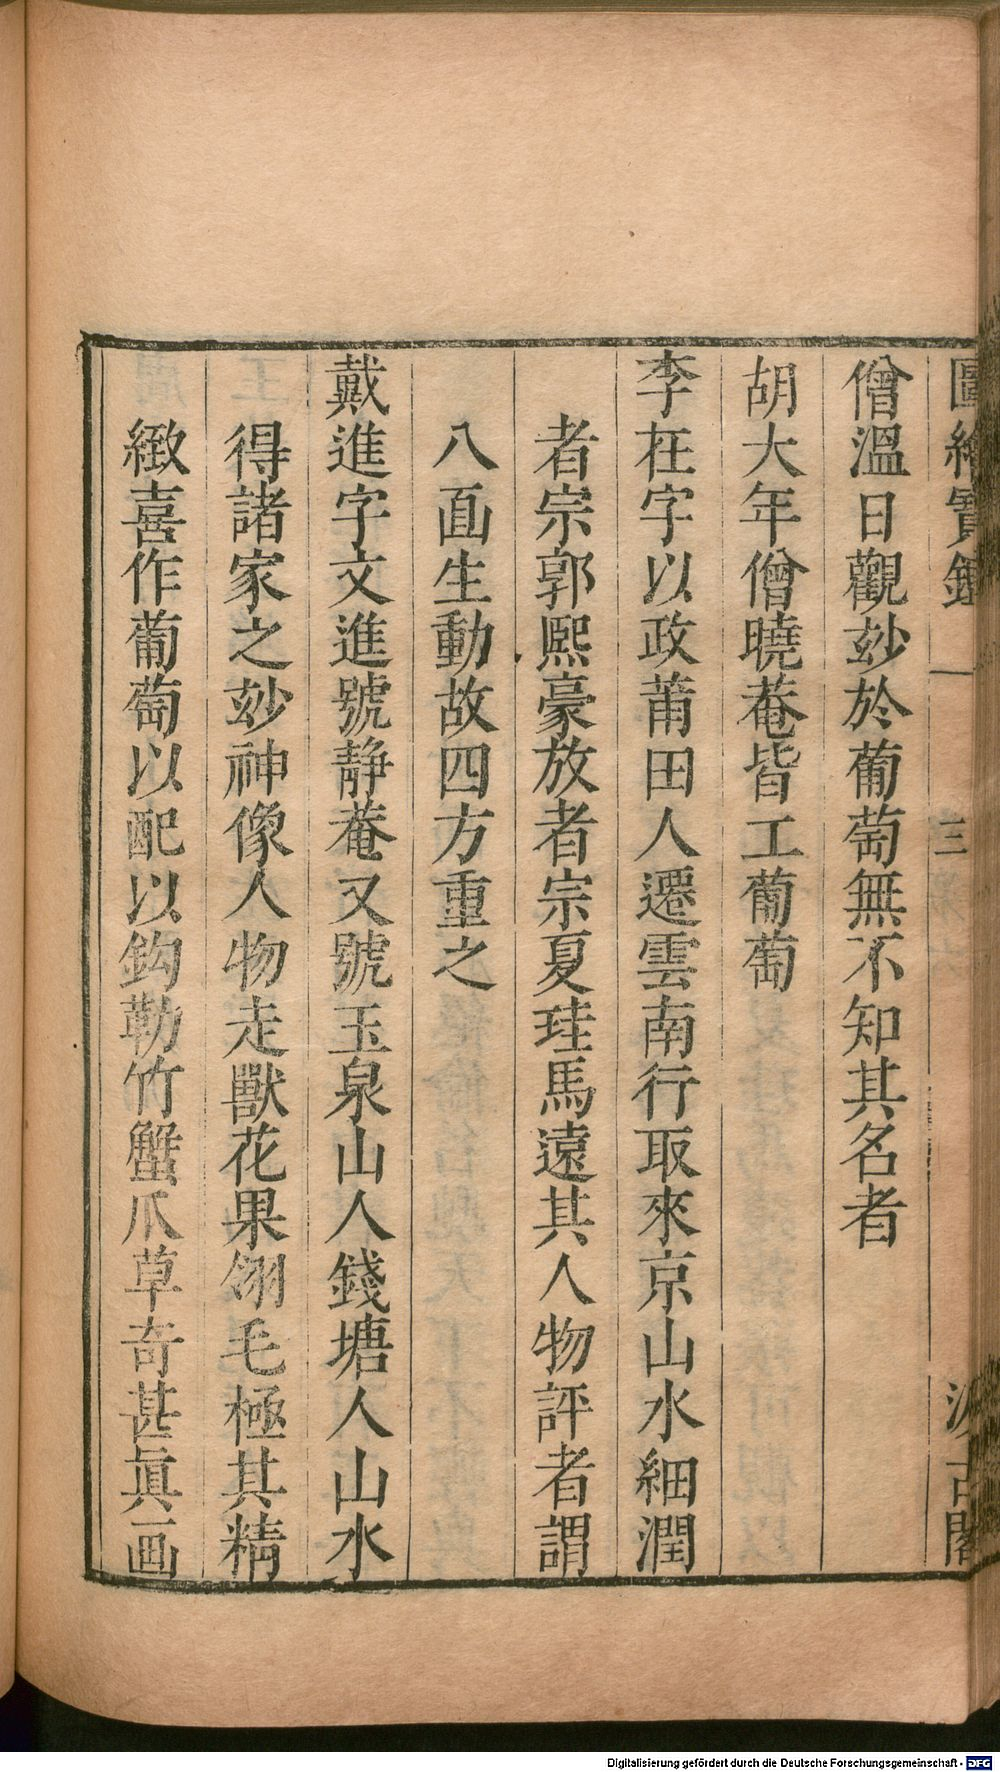 圖繪寳鑑 一 三 汲古閣
僧溫日觀玅於葡萄無不知其名者
胡大年僧曉菴皆工葡萄
李在字以政莆田人遷雲南行取來京山水細潤
者宗郭熙豪放者宗夏珪馬遠其人物評者謂
八面生動故四方重之
戴進字文進號静菴又號玉泉山人錢塘人山水
得諸家之玅神像人物走獸花果翎毛極其精
緻喜作葡萄以配以鈎勒竹蟹爪草奇甚眞画
Digitalisierung gefördert durch die Deutsche Forschungsgemeinschaft - DFG